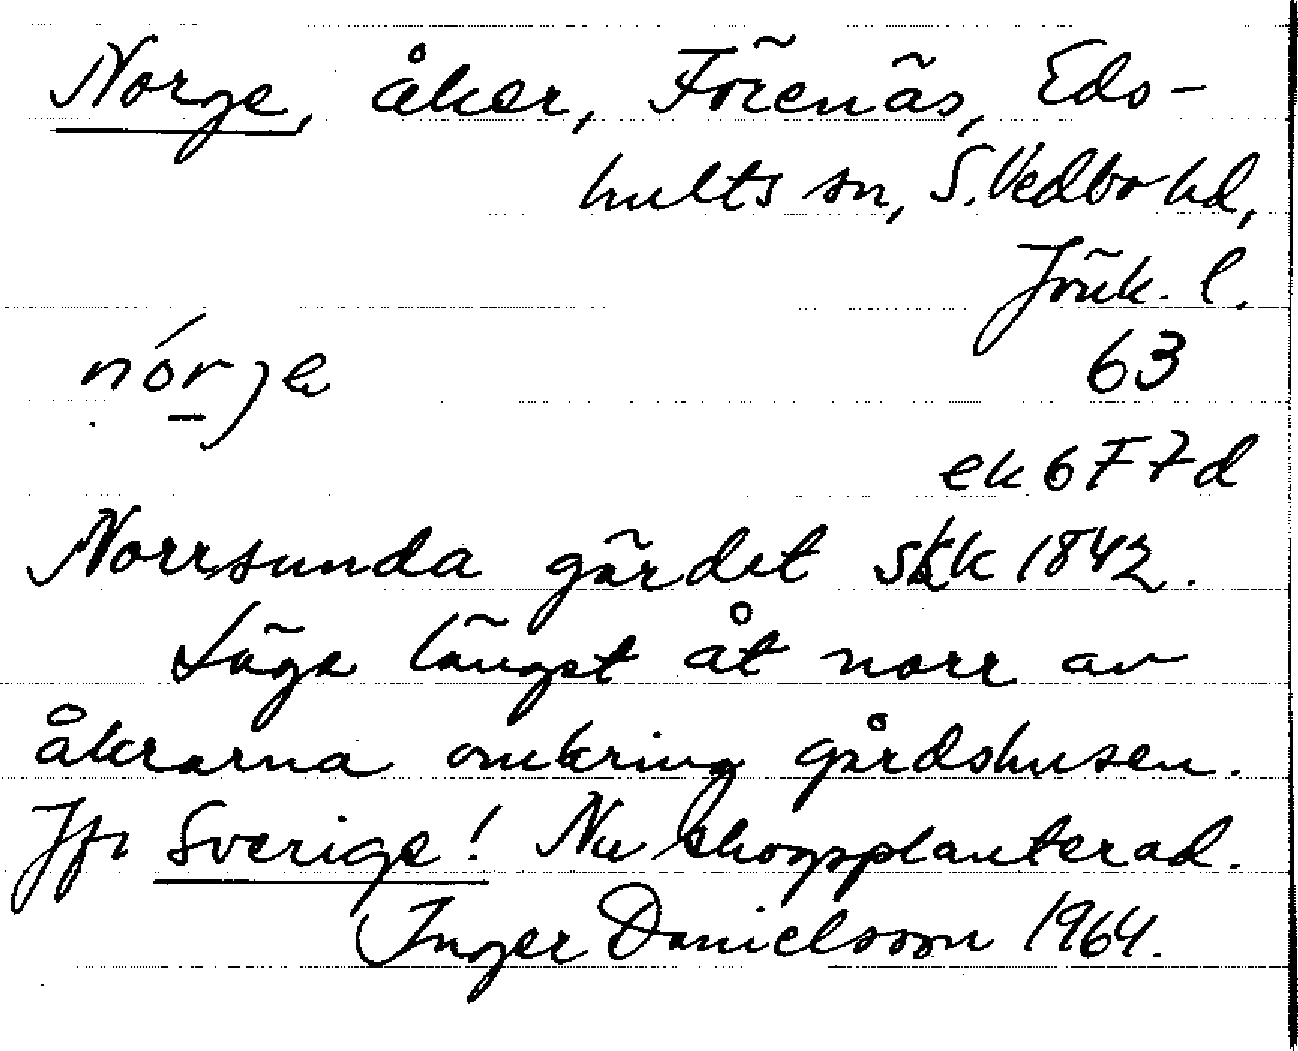 Norge, åker, Förenäs, Eds-
hults sn, S. Vedbo hd,
Jönk. l.
nórje 63
ek 6 F 7 d
Norrsunda gärdet skk 1842.
Läge längst åt norr av
åkrarna omkring gårdshusen.
Jfr Sverige! Nu skogsplanterad.
Inger Danielsson 1964.